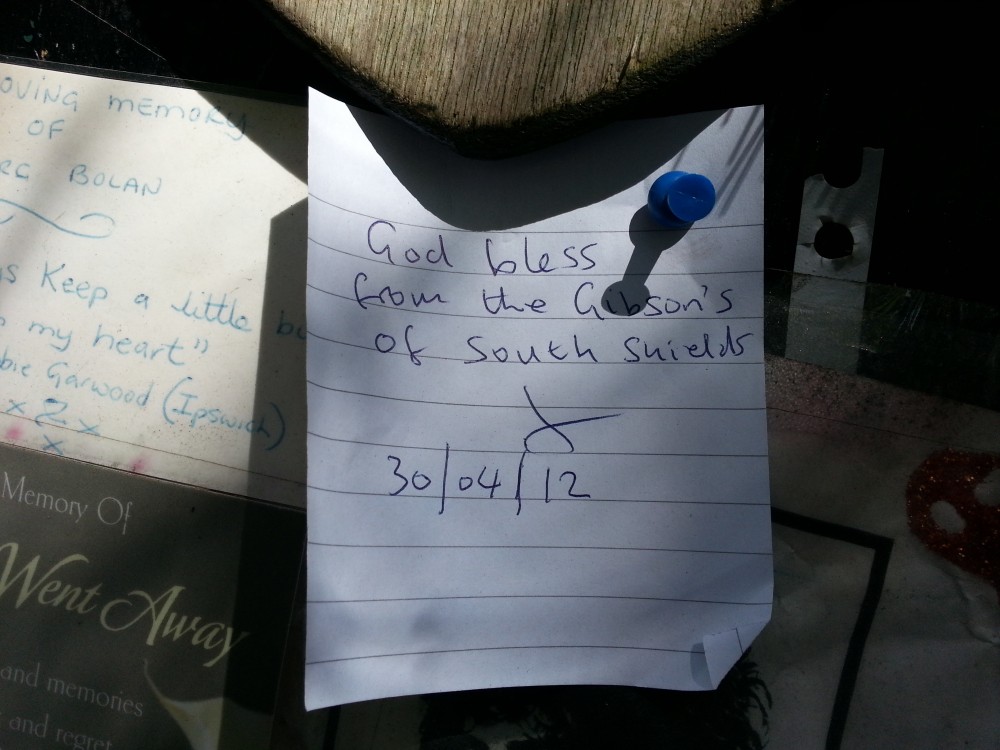 OVING MEMORY
OF
RC BOLAN
Keep a little
my heart"
bie Garwood (Ipswich)
x 2 x
x
Memory Of
Went Away
and memories
and regret
God bless
from the Gibson's
of South Shields
X
30/04/12